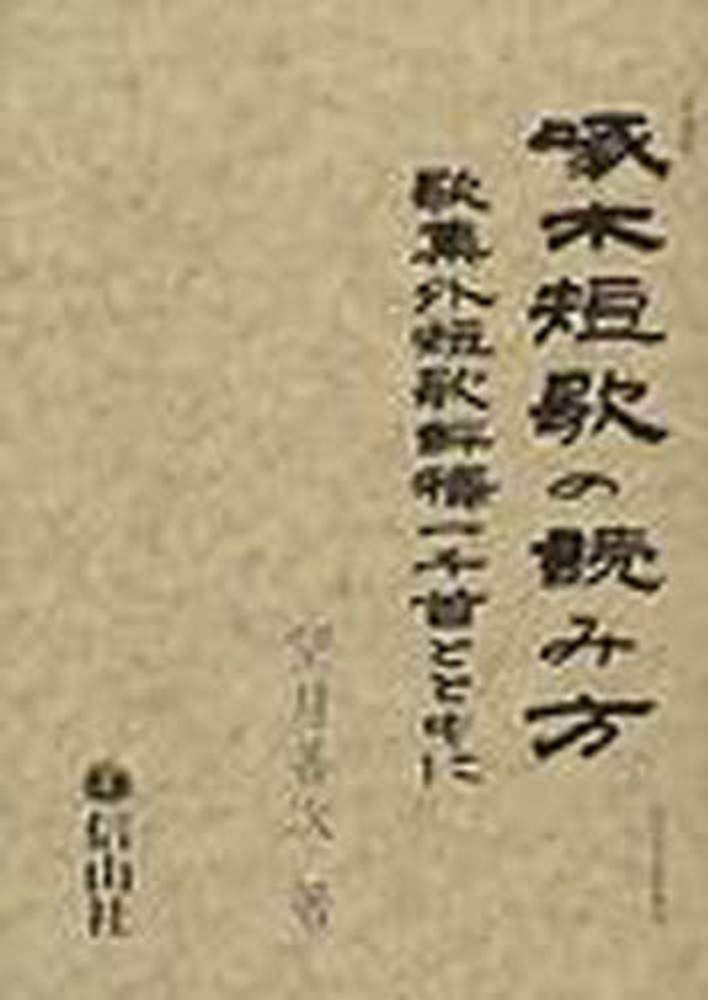 啄木短歌の読み方
歌集外短歌評釈一千首とともに
望月善次 著
信山社